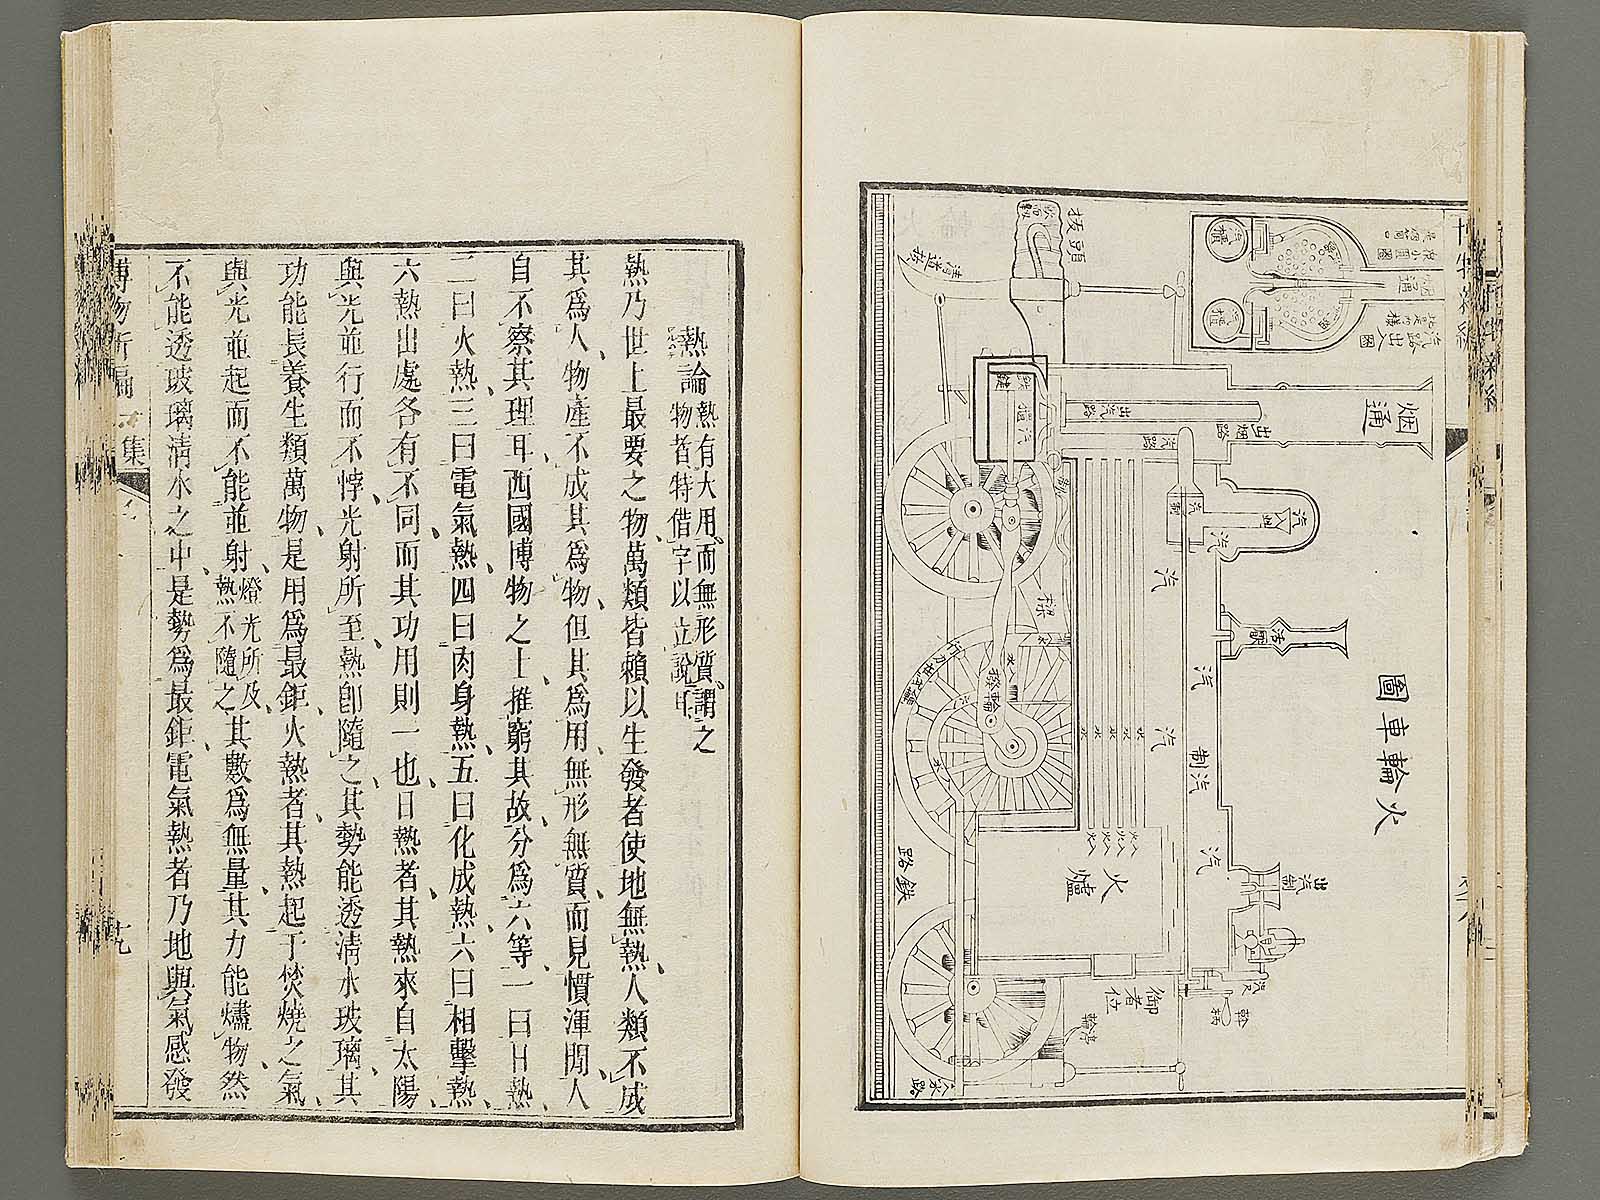 火輪車圖
烟通
汽櫃
汽櫃
烟通
拔頭
清道菀
汽櫃
出汽路
出烟路
汽路
汽制
汽
汽
汽
汽
汽
制汽
汽
火爐
鉄路
御者位
出汽制
撥輪
熱論熱有大用而無形質謂之
物者特借字以立說耳
熱乃世上最要之物萬類皆賴以生發者使地無熱人類不成
其爲人物產不成其爲物但其爲用無形無質而見慣渾閒人
自不察其理耳西國博物之士推窮其故分爲六等一曰日熱
二曰火熱三曰電氣熱四曰肉身熱五曰化成熱六曰相擊熱
六熱出處各有不同而其功用則一也日熱者其熱來自太陽
與光並行而不悖光射所至熱卽隨之其勢能透清水玻璃其
功能長養生類萬物是用爲最鉅火熱者其熱起于焚燒之氣
與光並起而不能並射燈光所及熱不隨之其數爲無量其力能燼物然
不能透玻璃清水之中是勢爲最鉅電氣熱者乃地與氣感發
集
十九